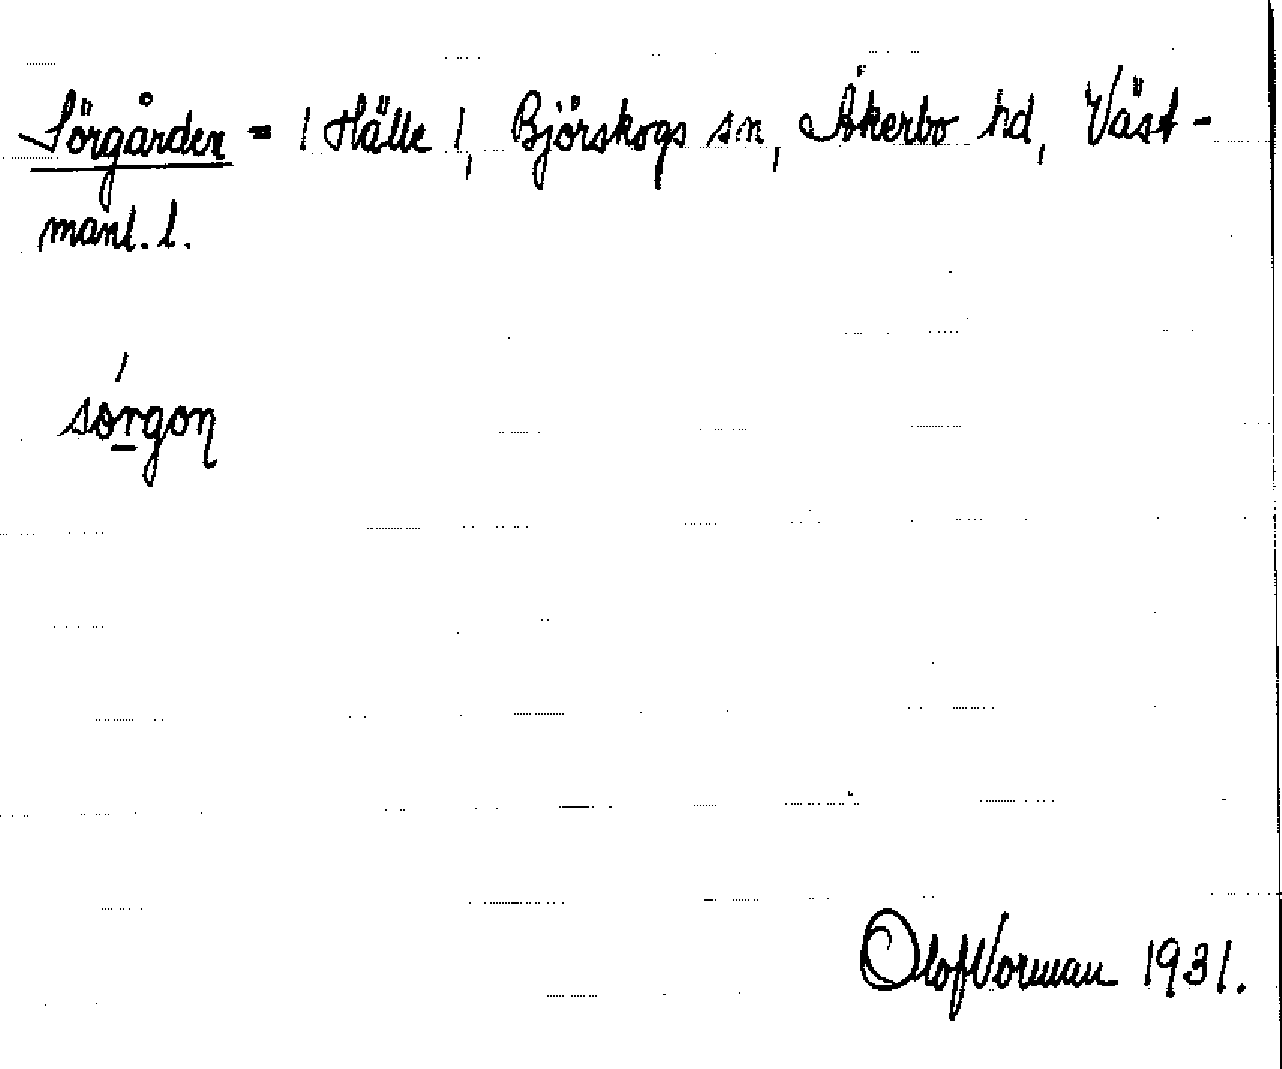 Sörgården = / Hälle /, Björskogs sn, Åkerbo hd, Väst-
manl. l.
sórgon
Olof Vorman 1931.